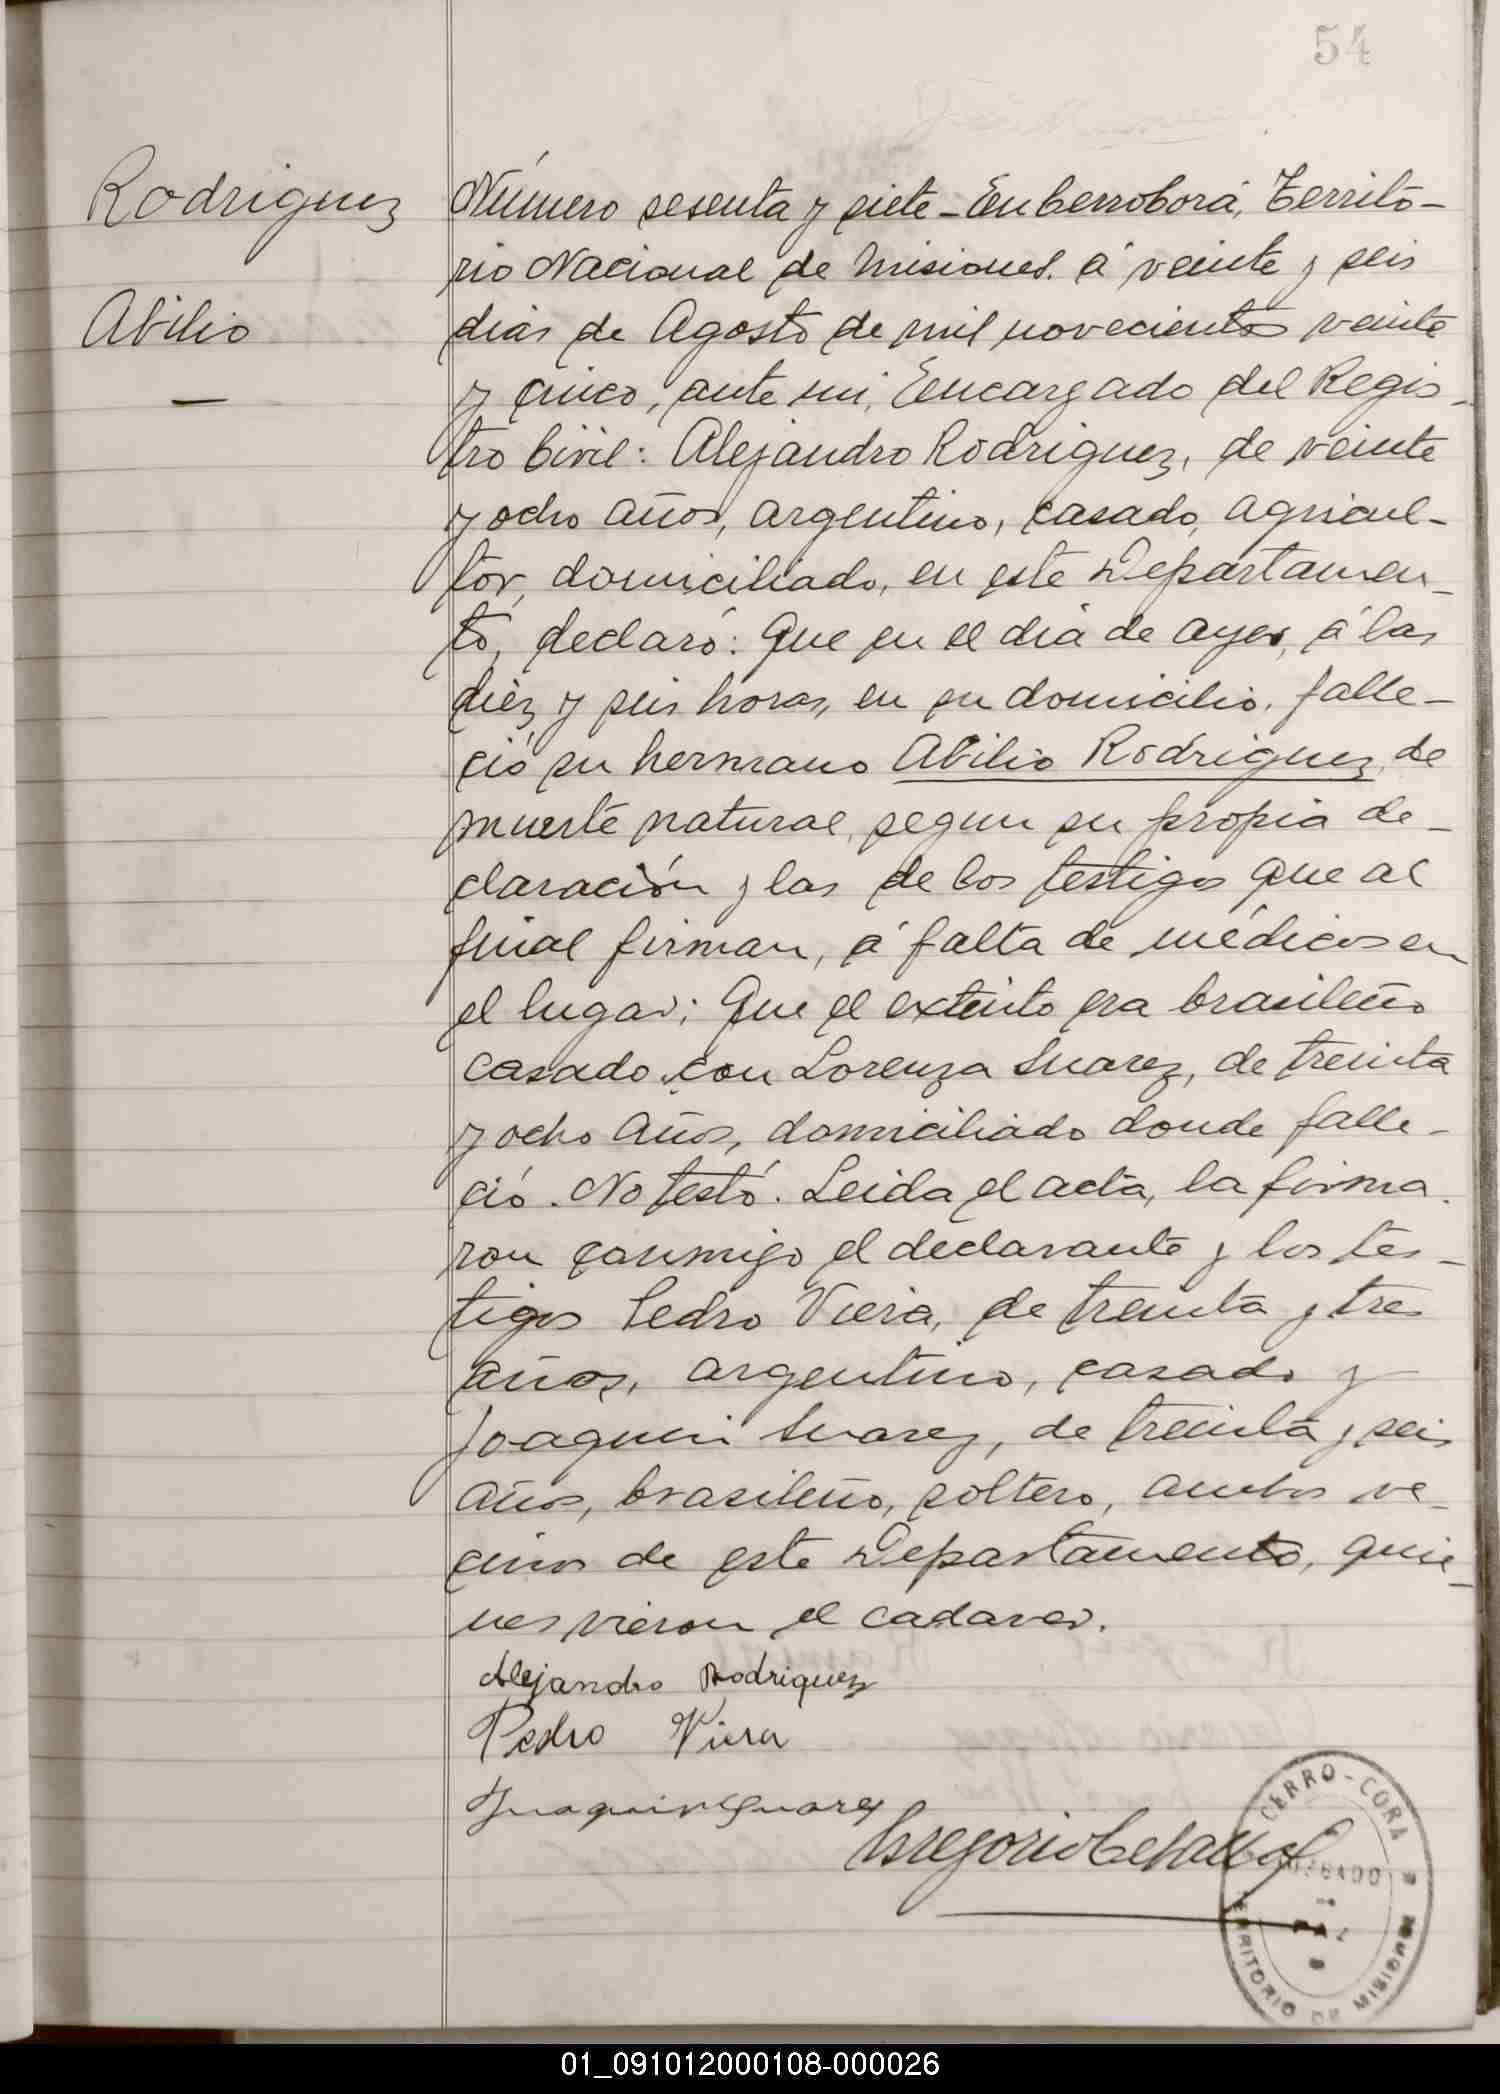 54
Rodriguez
Abilio
Número sesenta y siete - En Cerro Corá, Territo-
rio Nacional de Misiones. á veinte y seis
dias de Agosto de mil novecientos veinte
y cinco, ante mi, Encargado del Regis-
tro Civil: Alejandro Rodriguez, de veinte
y ocho años, argentino, casado, agricul-
tor, domiciliado, en este Departamen-
to, declaró: Que en el dia de ayer, á las
diez y seis horas, en su domicilio, falle-
ció su hermano Abilio Rodriguez, de
muerte natural, segun su propia de-
claración y las de los testigos que al
final firman, á falta de médicos en
el lugar; Que el extinto era brasileño
casado con Lorenza Suarez, de treinta
y ocho años, domiciliado donde falle-
ció. No testó. Leida el acta, la firma.
ron conmigo el declarante y los tes-
tigos Pedro Viera, de treinta y tres
años, argentino, casado y
Joaquin Suarez, de treinta y seis
años, brasileño, soltero, ambos ve-
cinos de este Departamento, quie-
nes vieron el cadaver.
Alejandro Rodriguez
Pedro Viera
Juaquin Suarez
Gregorio
CERRO-CORA
JUZGADO
DE
PAZ
TERRITORIO DE MISIONES
01_091012000108-000026